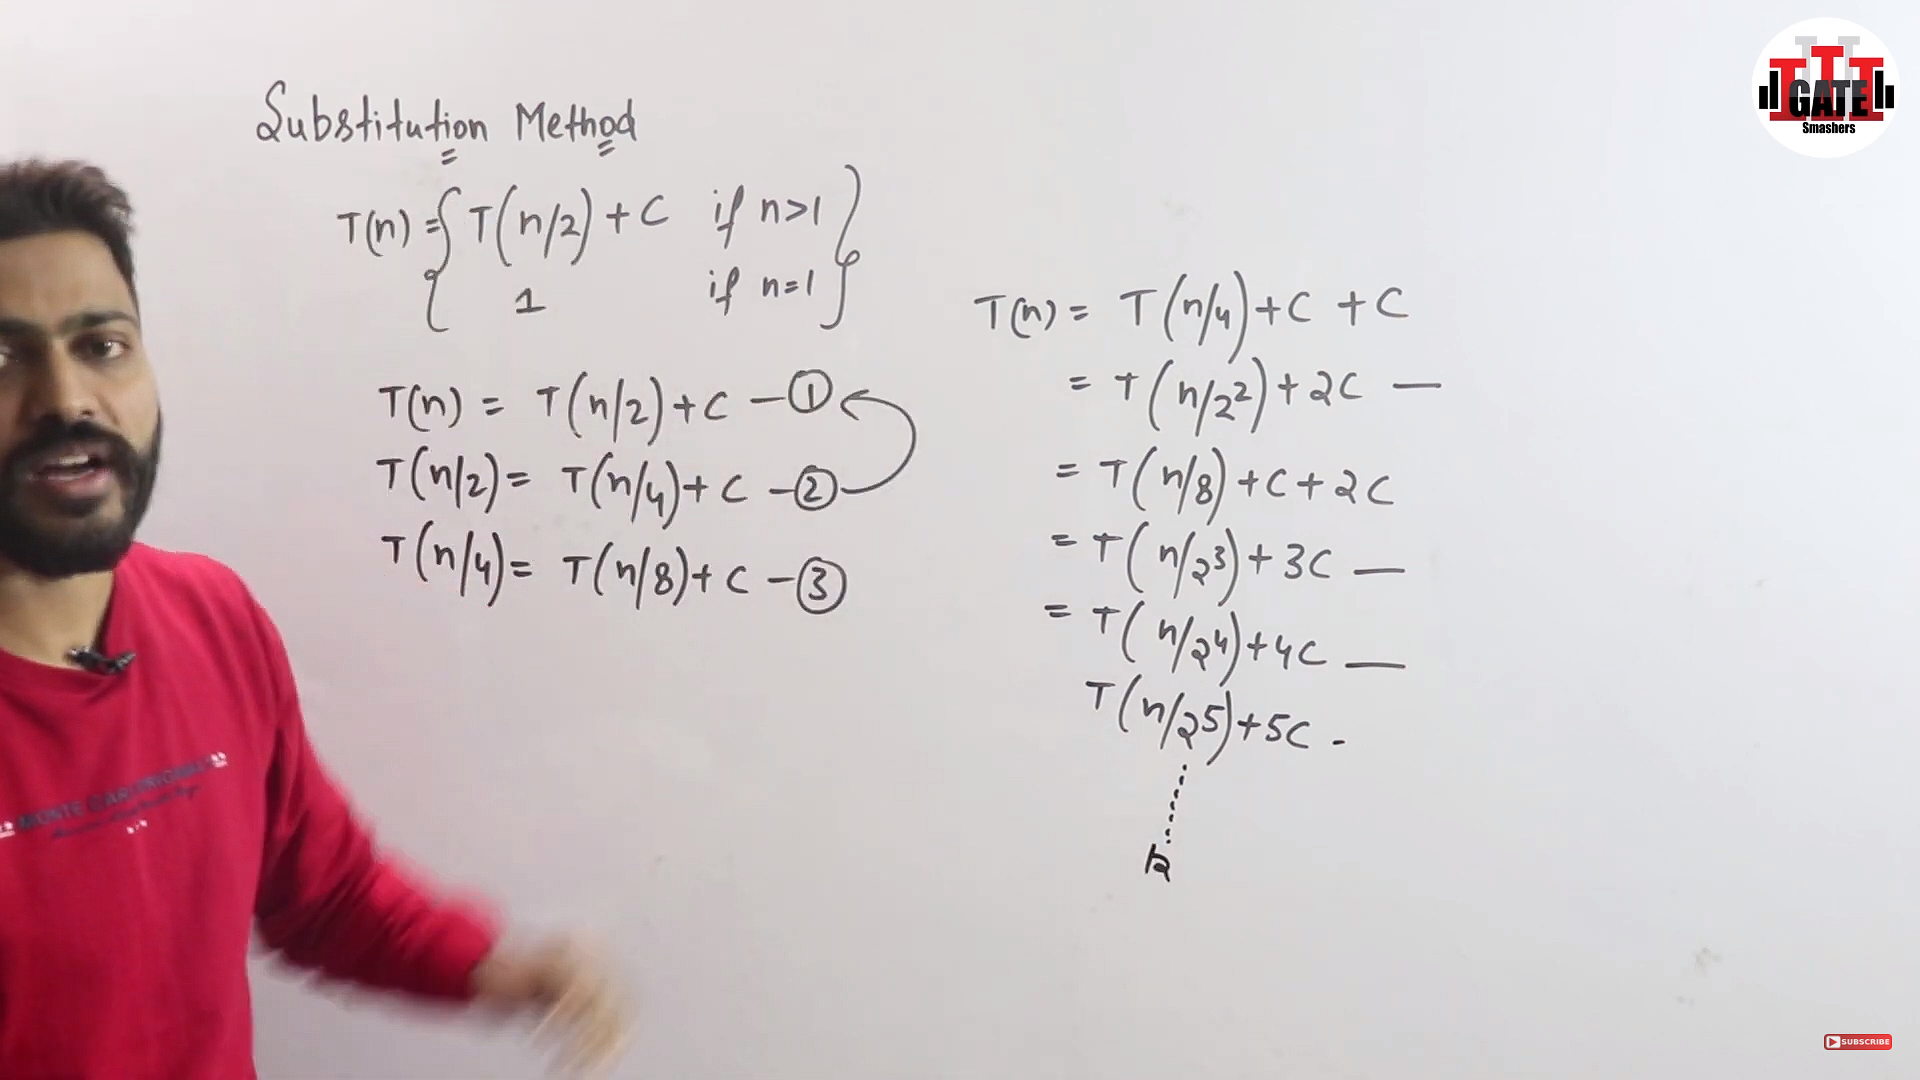 Substitution Method
T(n) = { T(n/2) + C if n>1
1 if n=1 }
T(n) = T(n/2) + C — ①
T(n/2) = T(n/4) + C — ②
T(n/4) = T(n/8) + C — ③
T(n) = T(n/4) + C + C
= T(n/2²) + 2C —
= T(n/8) + C + 2C
= T(n/2³) + 3C —
= T(n/2⁴) + 4C —
T(n/2⁵) + 5C -
k
GATE
Smashers
SUBSCRIBE